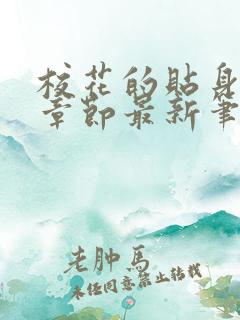 校花的贴身
章节最新笔
老肿马
未经同意禁止转载